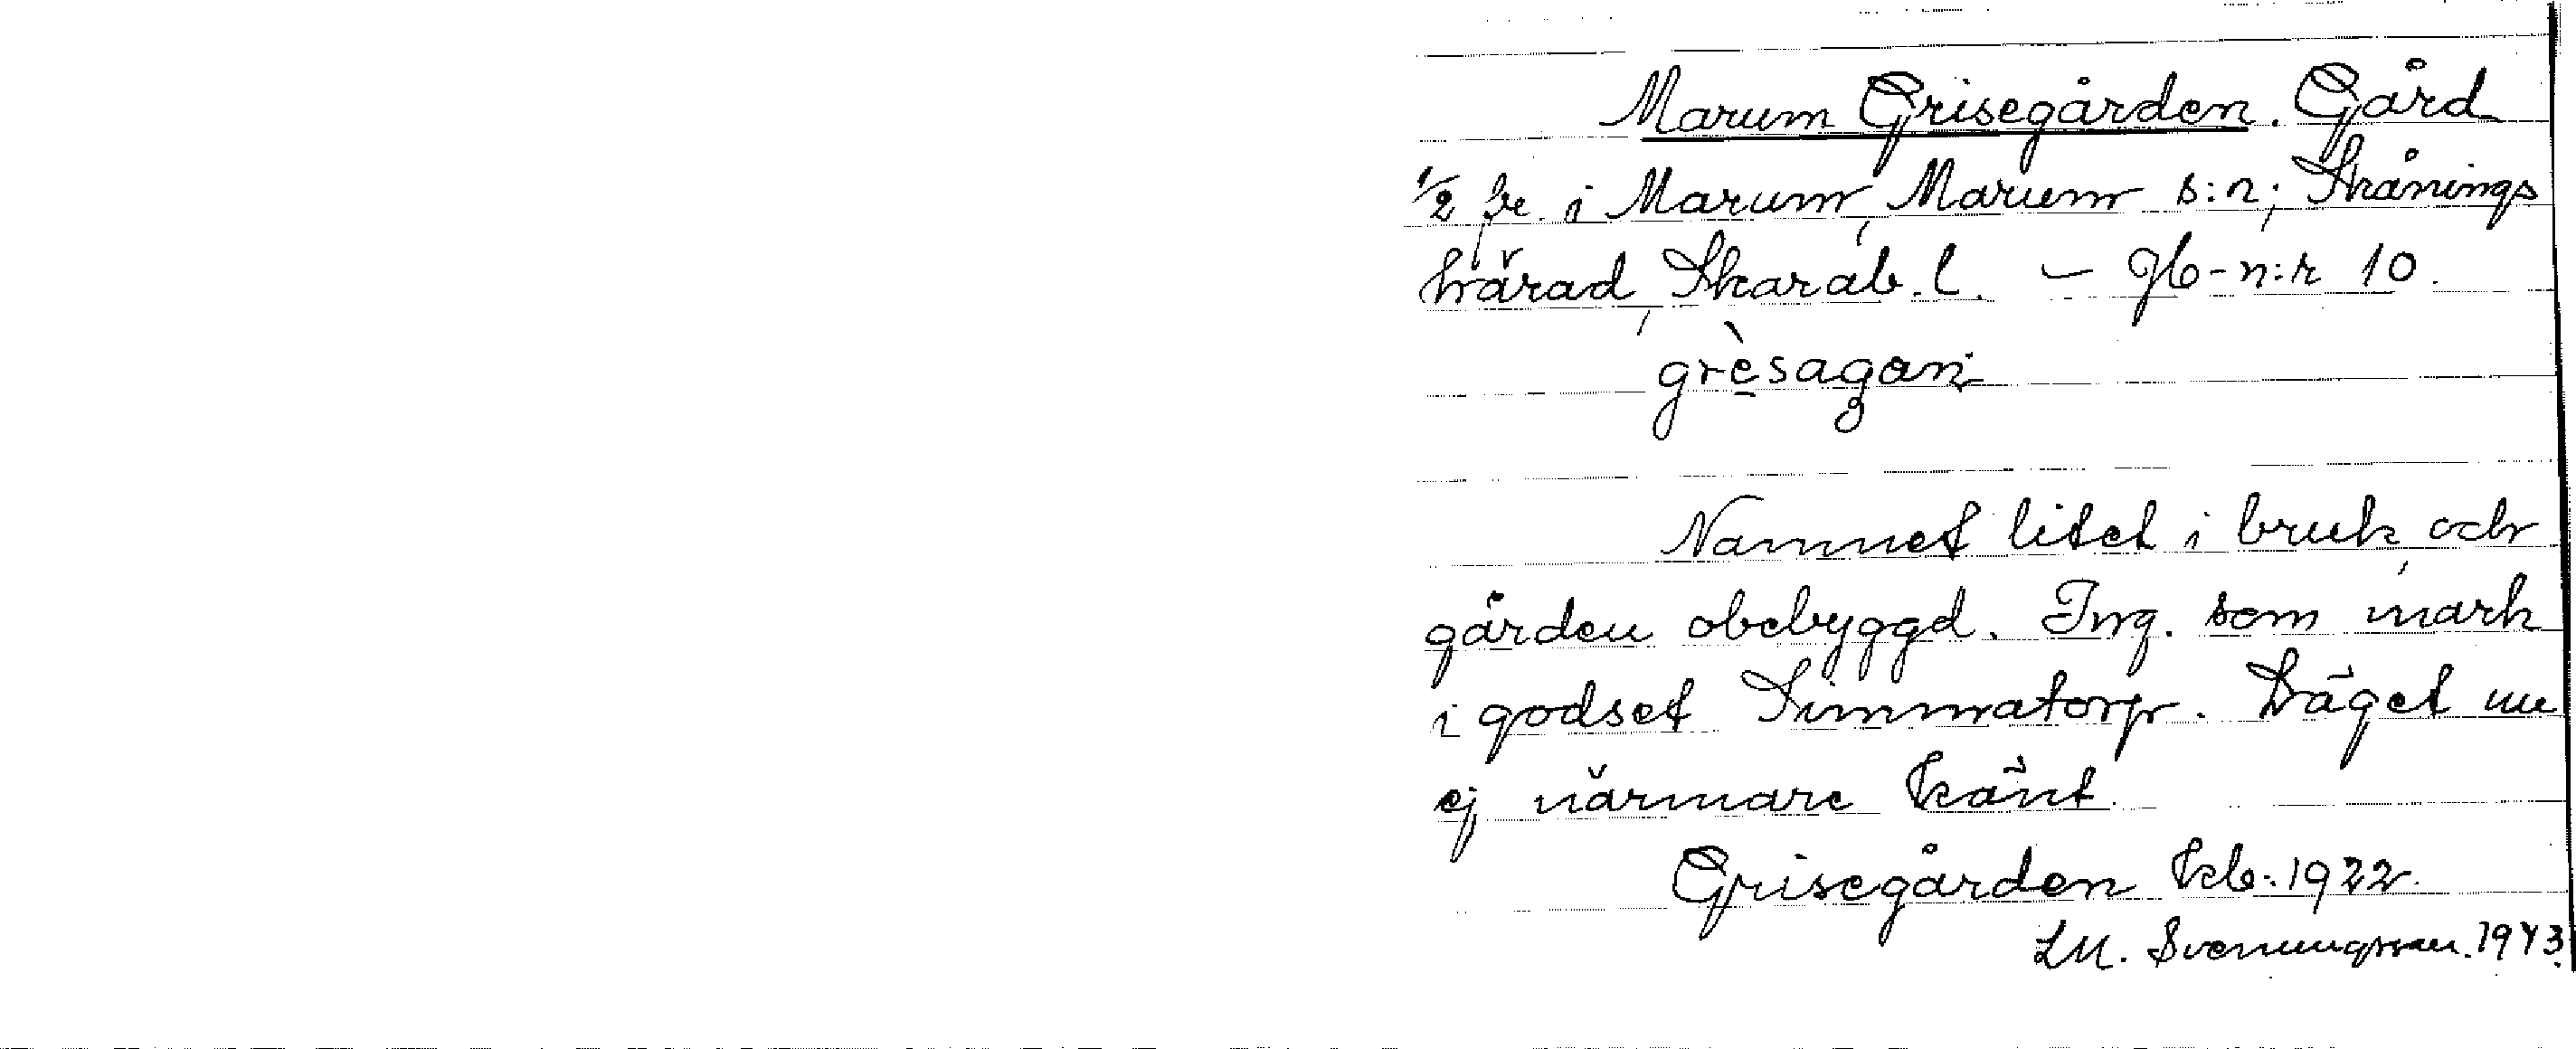 Marum Grisegården. Gård
1/2 hr. i Marum, Marum s:n; Skånings
härad, Skarab. l. – Jb-n:r 10.
grèsagan
Namnet litet i bruk, och
gården obebyggd. Ing. som mark
i godset Simmatorp. Läget nu
ej närmare känt.
Grisegården kb. 1922.
L.M. Svenungsson. 1943.